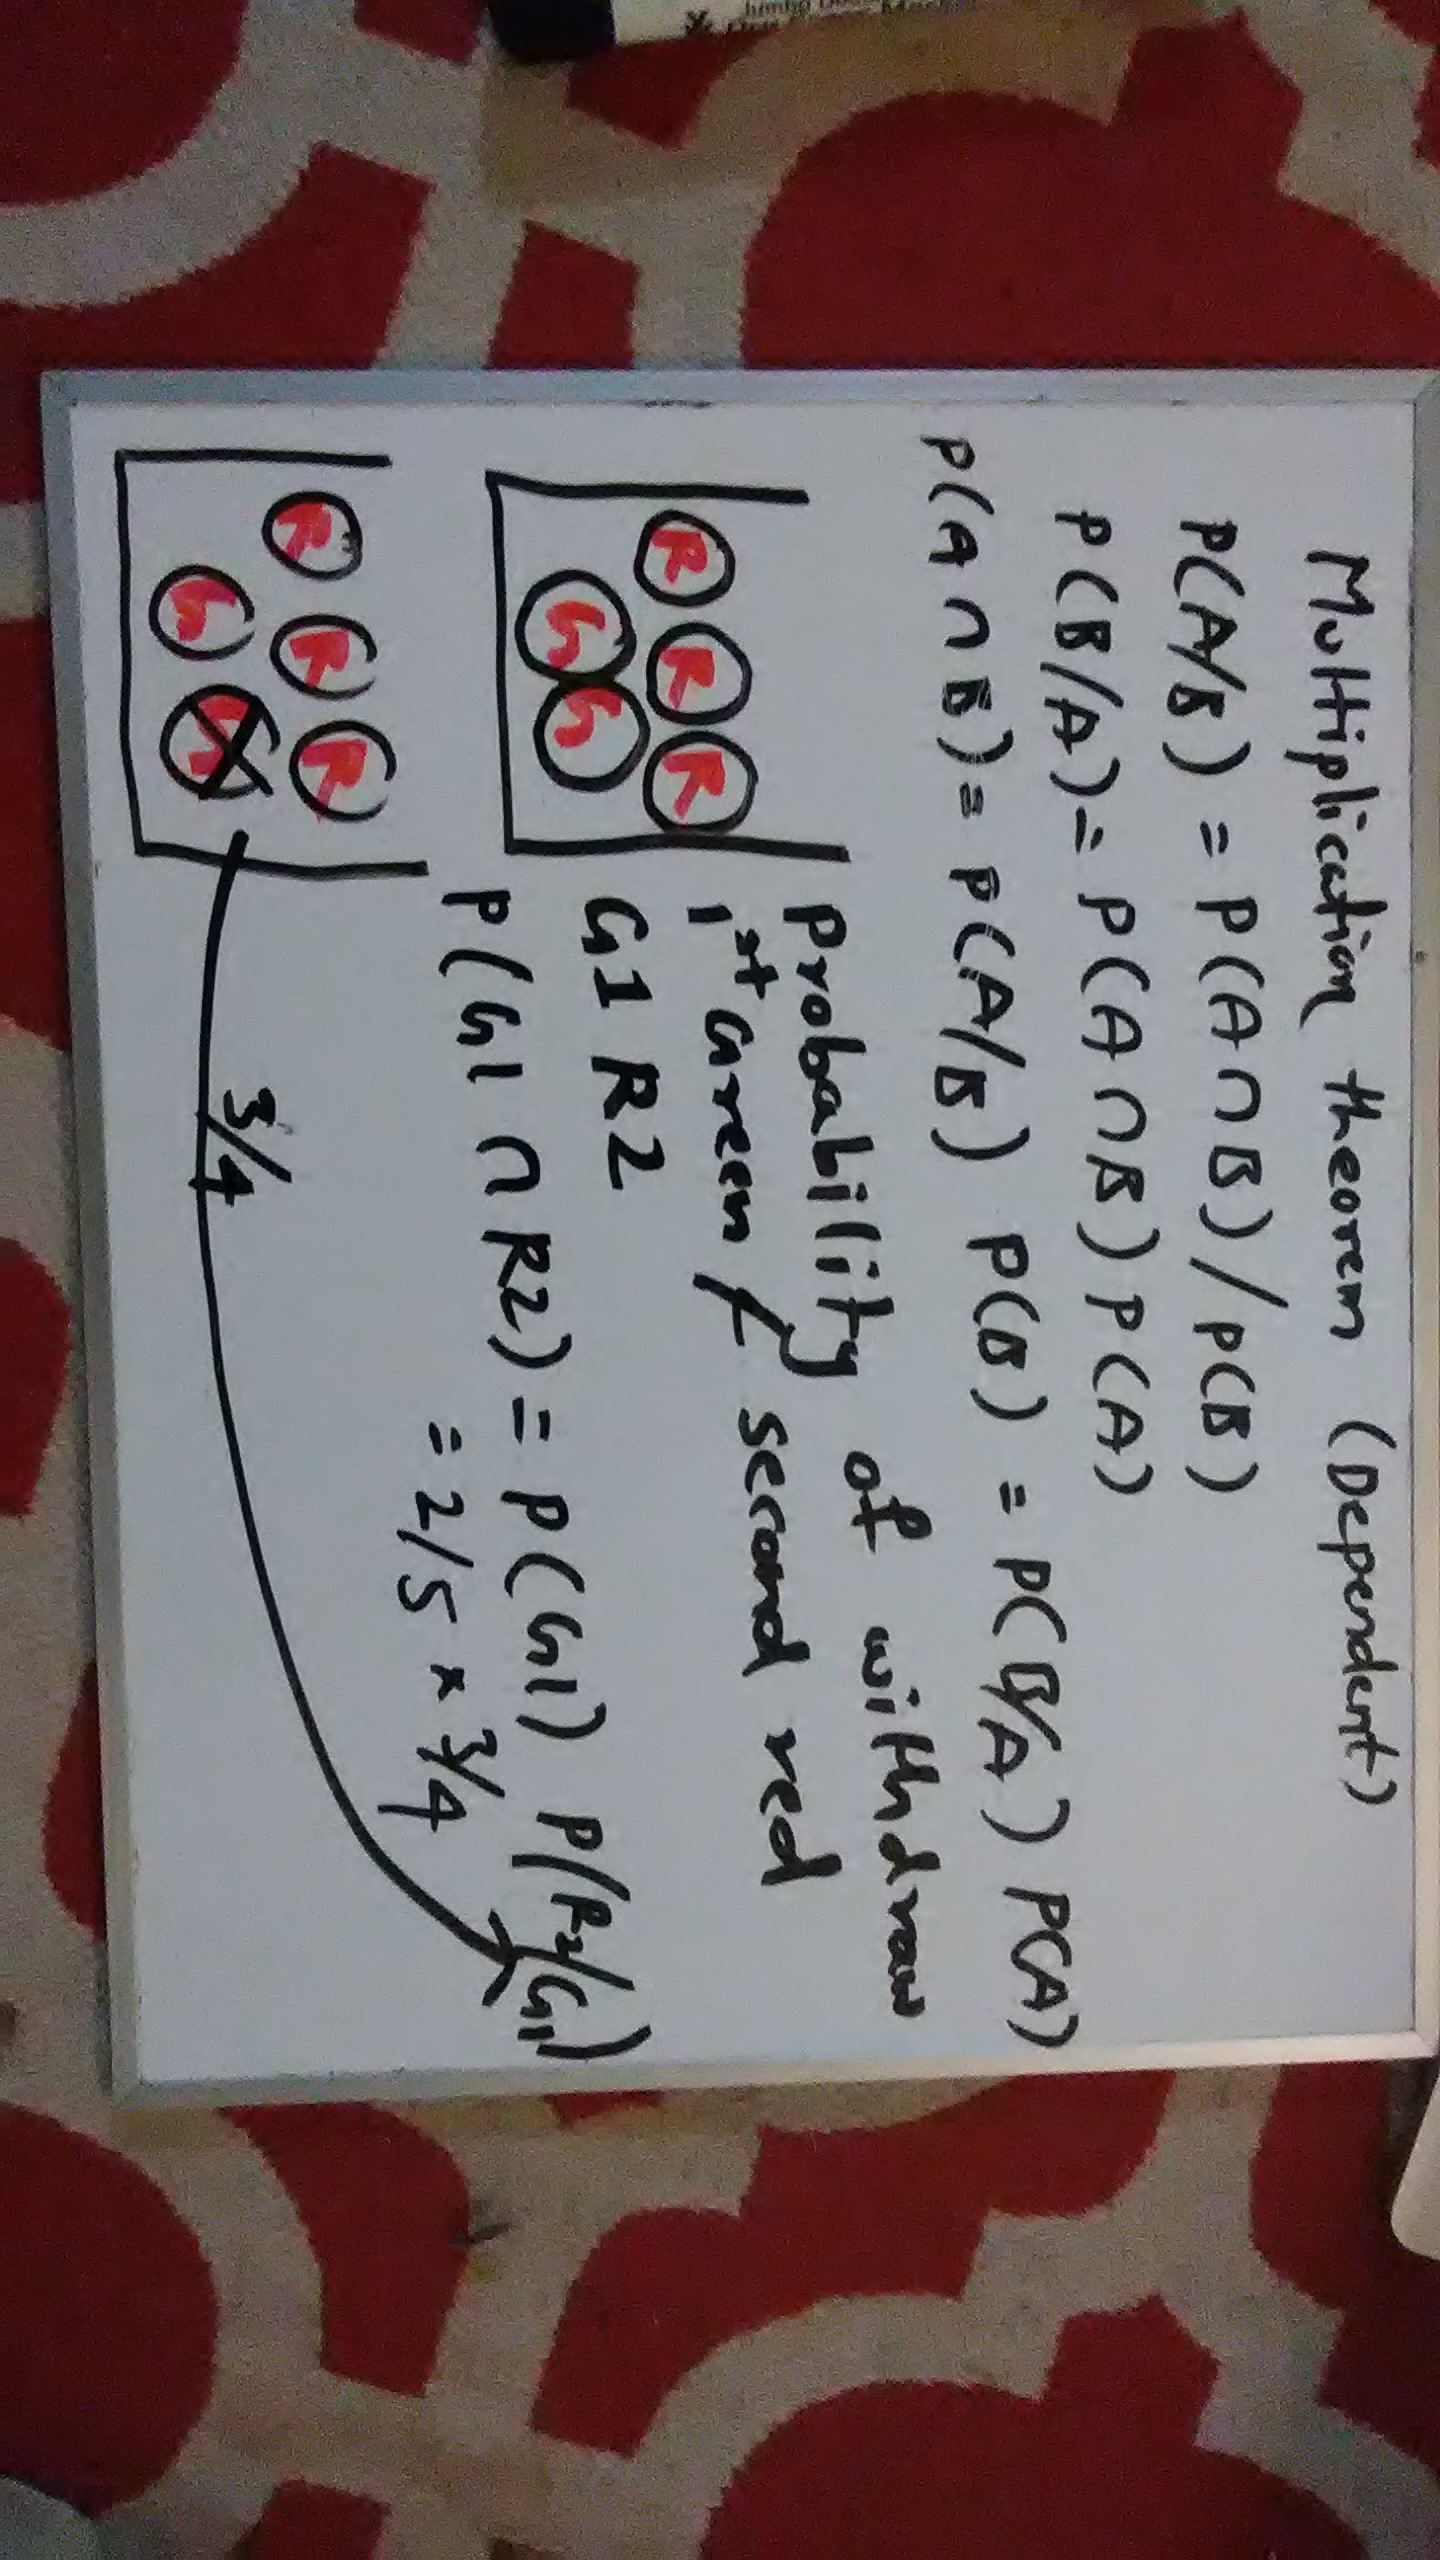 Multiplication theorem (Dependent)
P(A/B) = P(A∩B)/P(B)
P(B/A) = P(A∩B) P(A)
P(A∩B) = P(A/B) P(B) = P(B/A) P(A)
R R R
G G
Probability of withdraw
1st Green & second red
G1 R2
P(G1 ∩ R2) = P(G1) P(R2/G1)
= 2/5 × 3/4
R R R
G G
3/4